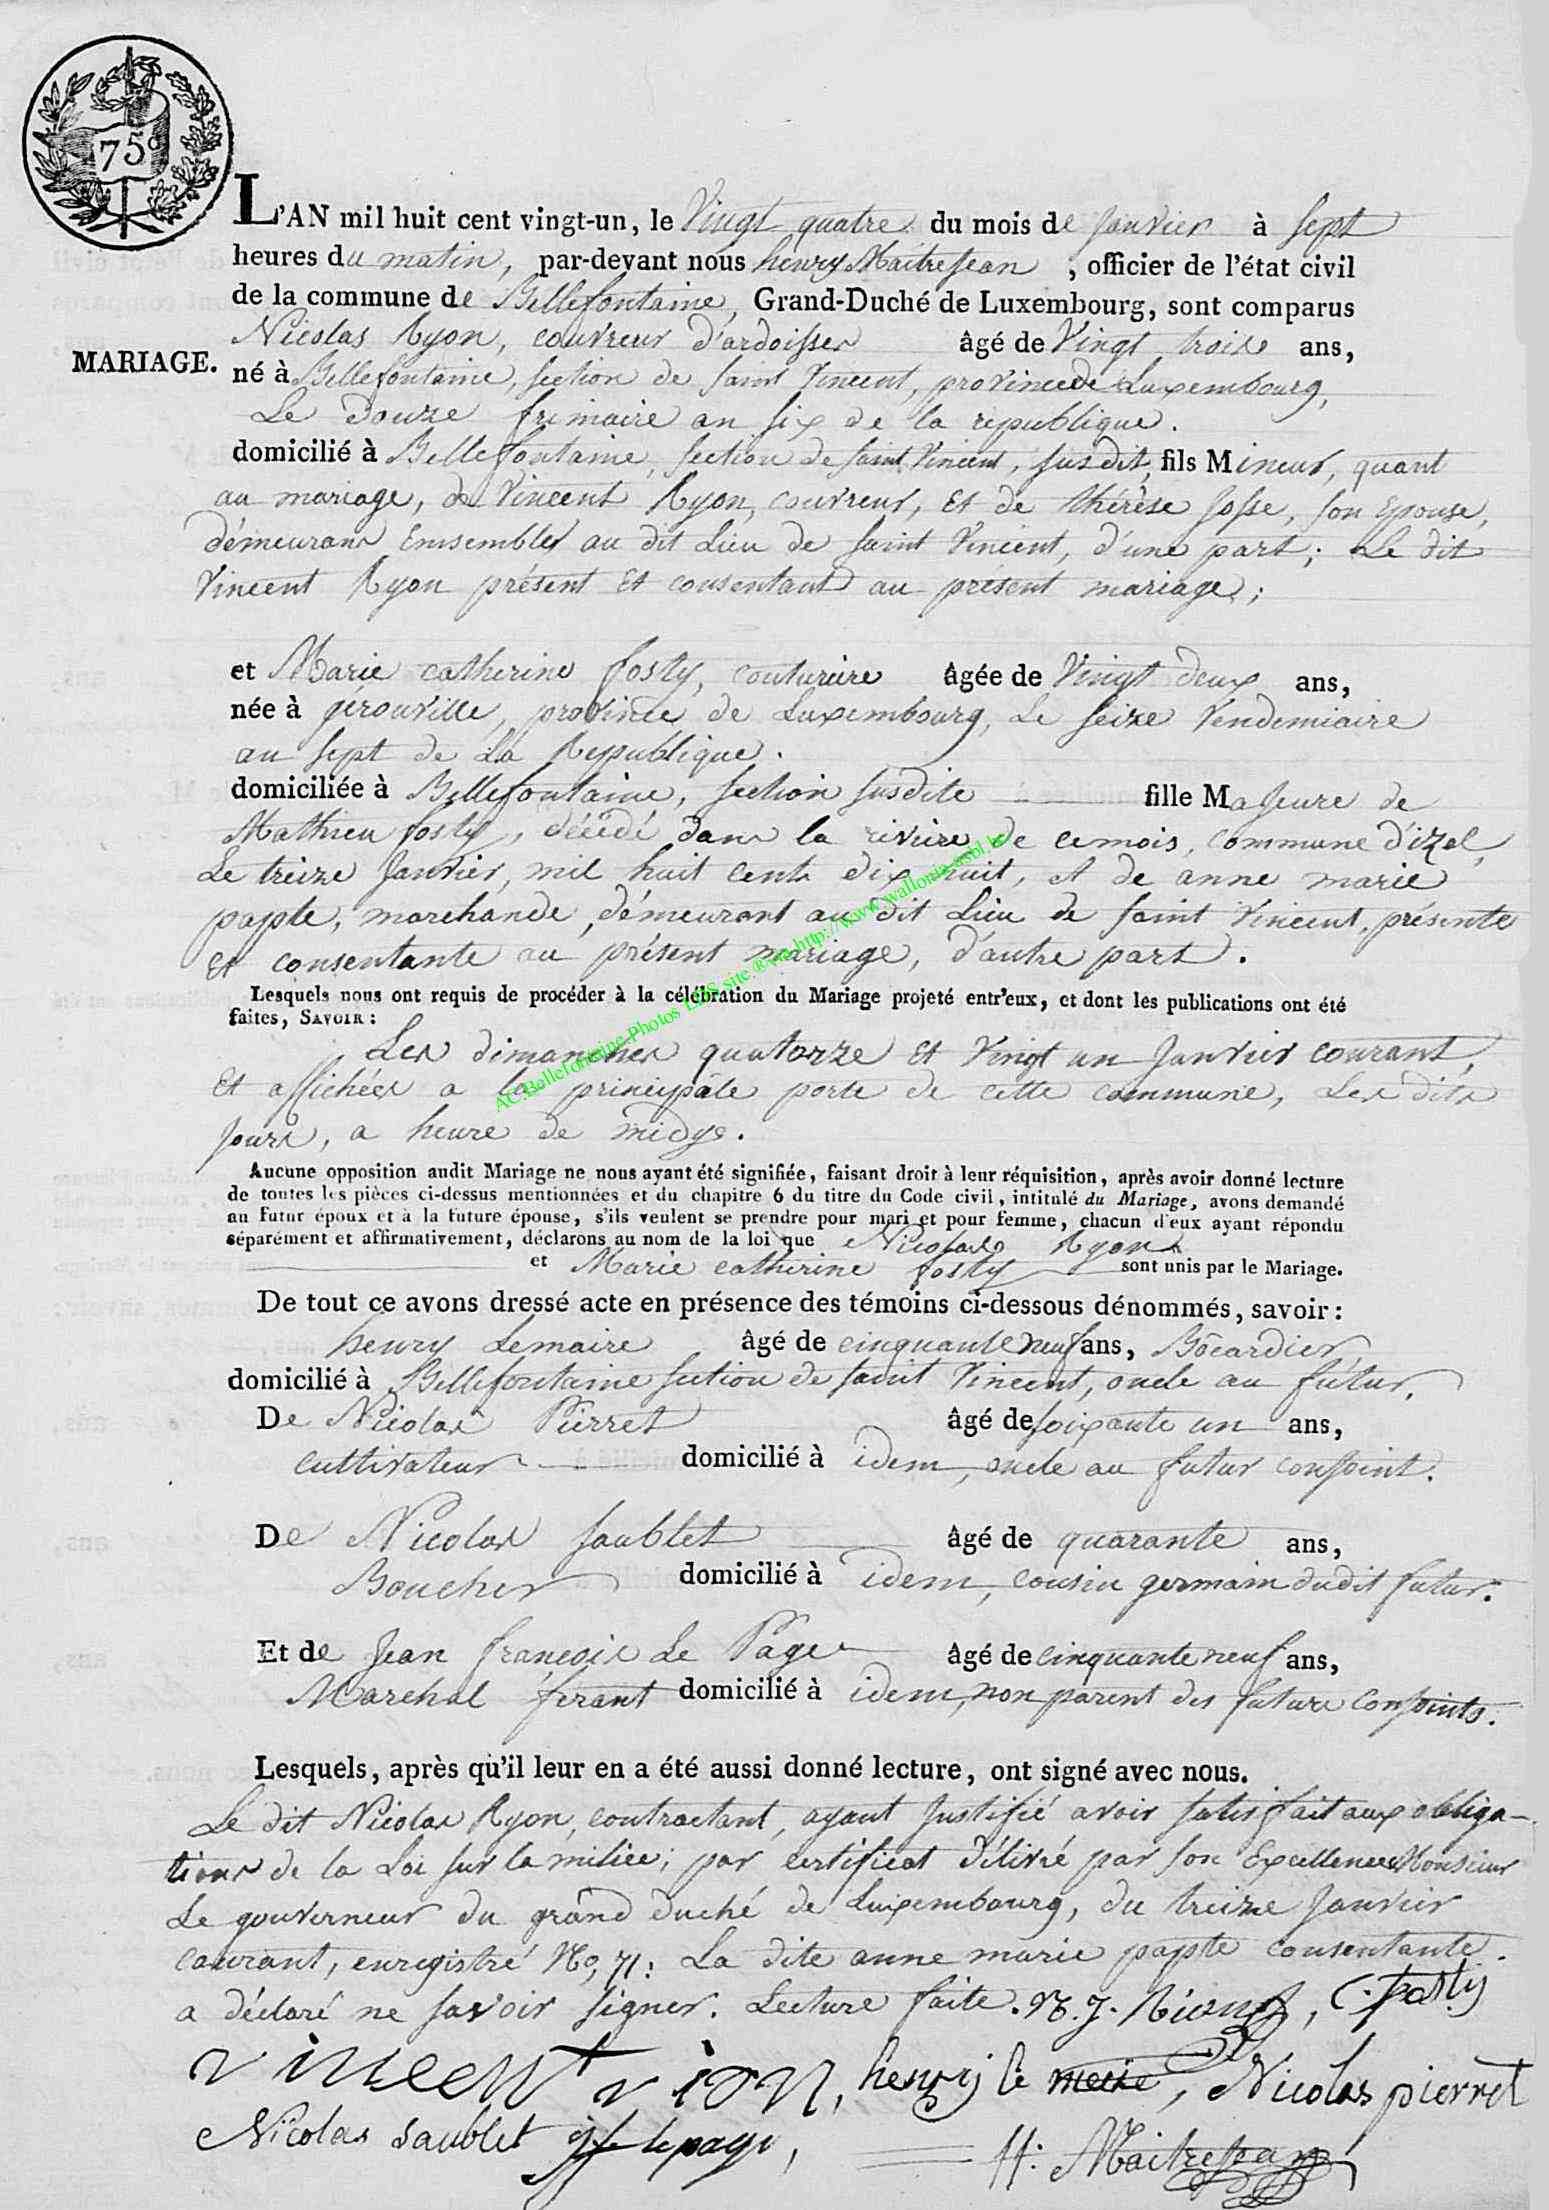 75c
L'AN mil huit cent vingt-un, le Vingt quatre du mois de Janvier à sept
heures du matin, par-devant nous henry Maitrejean, officier de l'état civil
de la commune de Bellefontaine, Grand-Duché de Luxembourg, sont comparus
Nicolas Ryon, couvreur d'ardoisses âgé de Vingt trois ans,
MARIAGE.
né à Bellefontaine, section de saint Vincent, province de Luxembourg,
Le douze frimaire an six de la republique.
domicilié à Bellefontaine, section de saint Vincent, susdit, fils Mineur, quant
au mariage, de Vincent Ryon, couvreur, et de thérèse Josse, son Epouse,
démeurans Ensembles au dit Lieu de saint Vincent, d'une part; Le dit
Vincent Ryon présent et consentant au présent mariage;
et Marie catherine fosty, couturière âgée de Vingt deux ans,
née à gérouville, province de Luxembourg, Le seize Vendemiaire
an sept de La Republique.
domiciliée à Bellefontaine, section susdite fille Majeure de
Mathieu fosty, décédé dans la rivière de cemois, commune d'izel,
Le treize Janvier, mil huit cents dix huit, et de anne marie
papte, marchande, démeurant au dit Lieu de saint Vincent, présente
et consentante au présent mariage, d'autre part.
Lesquels nous ont requis de procéder à la célébration du Mariage projeté entr'eux, et dont les publications ont été
faites, SAVOIR:
Les dimanches quatorze et Vingt un Janvier courant,
Et affichées a la principale porte de cette commune, Les dits
Jours, a heure de midy.
AC.Bellefontaine.Photos LDS site http://www.wallonia-asbl.be
Aucune opposition audit Mariage ne nous ayant été signifiée, faisant droit à leur réquisition, après avoir donné lecture
de toutes les pièces ci-dessus mentionnées et du chapitre 6 du titre du Code civil, intitulé du Mariage, avons demandé
au futur époux et à la future épouse, s'ils veulent se prendre pour mari et pour femme, chacun d'eux ayant répondu
séparément et affirmativement, déclarons au nom de la loi que Nicolas Ryon
et Marie catherine fosty sont unis par le Mariage.
De tout ce avons dressé acte en présence des témoins ci-dessous dénommés, savoir:
henry Lemaire âgé de cinquante neuf ans, Bocardier
domicilié à Bellefontaine section de saint Vincent, oncle au futur.
De Nicolas Pierret âgé de soixante un ans,
cultivateur domicilié à idem, oncle au futur conjoint.
De Nicolas saublet âgé de quarante ans,
Boucher domicilié à idem, cousin germain dudit futur.
Et de Jean françois Le Page âgé de cinquante neuf ans,
Marchal ferant domicilié à idem, non parent des futurs conjoints.
Lesquels, après qu'il leur en a été aussi donné lecture, ont signé avec nous.
Le dit Nicolas Ryon, contractant, ayant Justifié avoir satisfait aux obliga-
tions de la Loi sur la milice; par certificat délivré par son Excellence Monsieur
Le gouverneur du grand duché de Luxembourg, du treize Janvier
courant, enregistré No, 71: La dite anne marie papte consentante
a déclaré ne savoir signer. Lecture faite. N. J. Rion, C. fosty
vincent rion, henrij le meire, Nicolas pierret
Nicolas saublet jf lepage,
H: Maitrejean